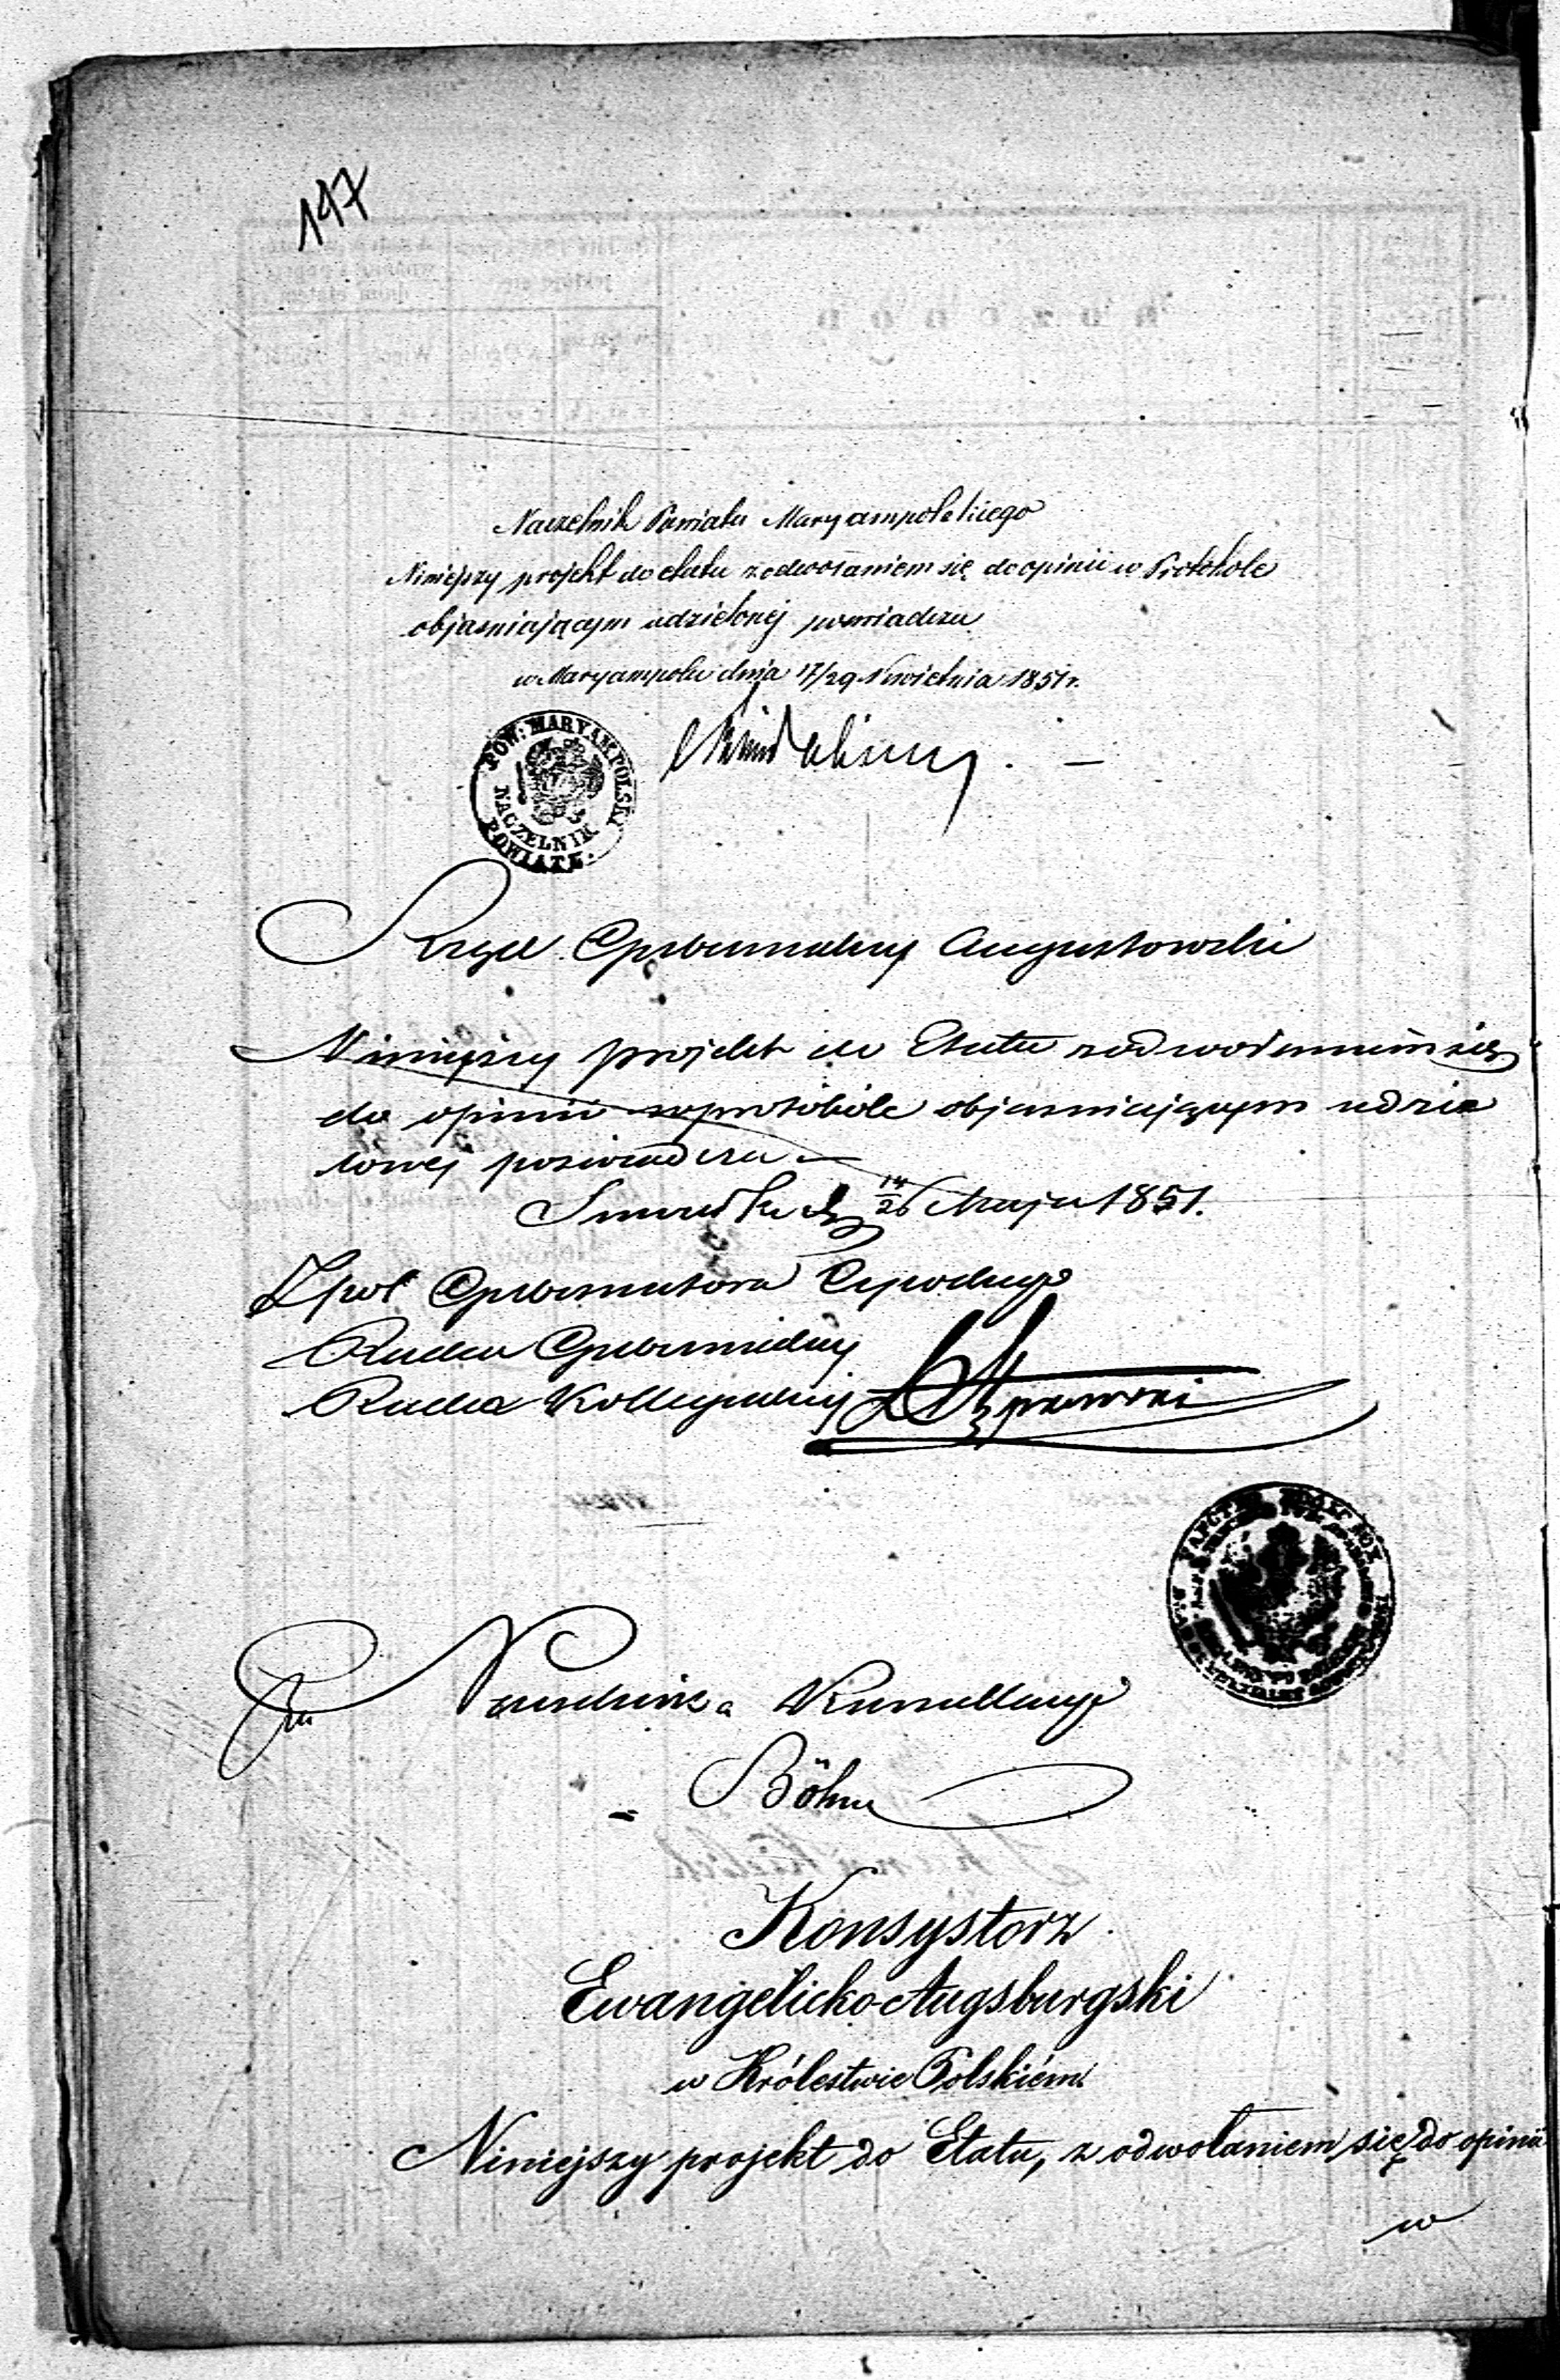 147
Naczelnik Powiatu Maryampolskiego
Niniejszy projekt do etatu z odwołaniem się do opinii w Protokole
objasniającym udzielonej poswiadcza
w Maryampolu dnia 17/29 Kwietnia 1851 r.
POW: MARYAMPOLSKI
NACZELNIK
POWIATU.
Rząd Gubernialny Augustowski
Niniejszy projekt do Etatu z odwołaniem się
do opinii w protokole objasniającym udzie
lonej poswiadcza
Suwałki d. 14/26 Maja 1851.
Gubernatora Cywilnego
Radca Gubernialny
Radca Kollegialny
Naczelnika Kancellaryi
Böhm
Konsystorz
Ewangelicko-Augsburgski
w Królestwie Polskiém
Niniejszy projekt do Etatu, z odwołaniem się do opinii
w